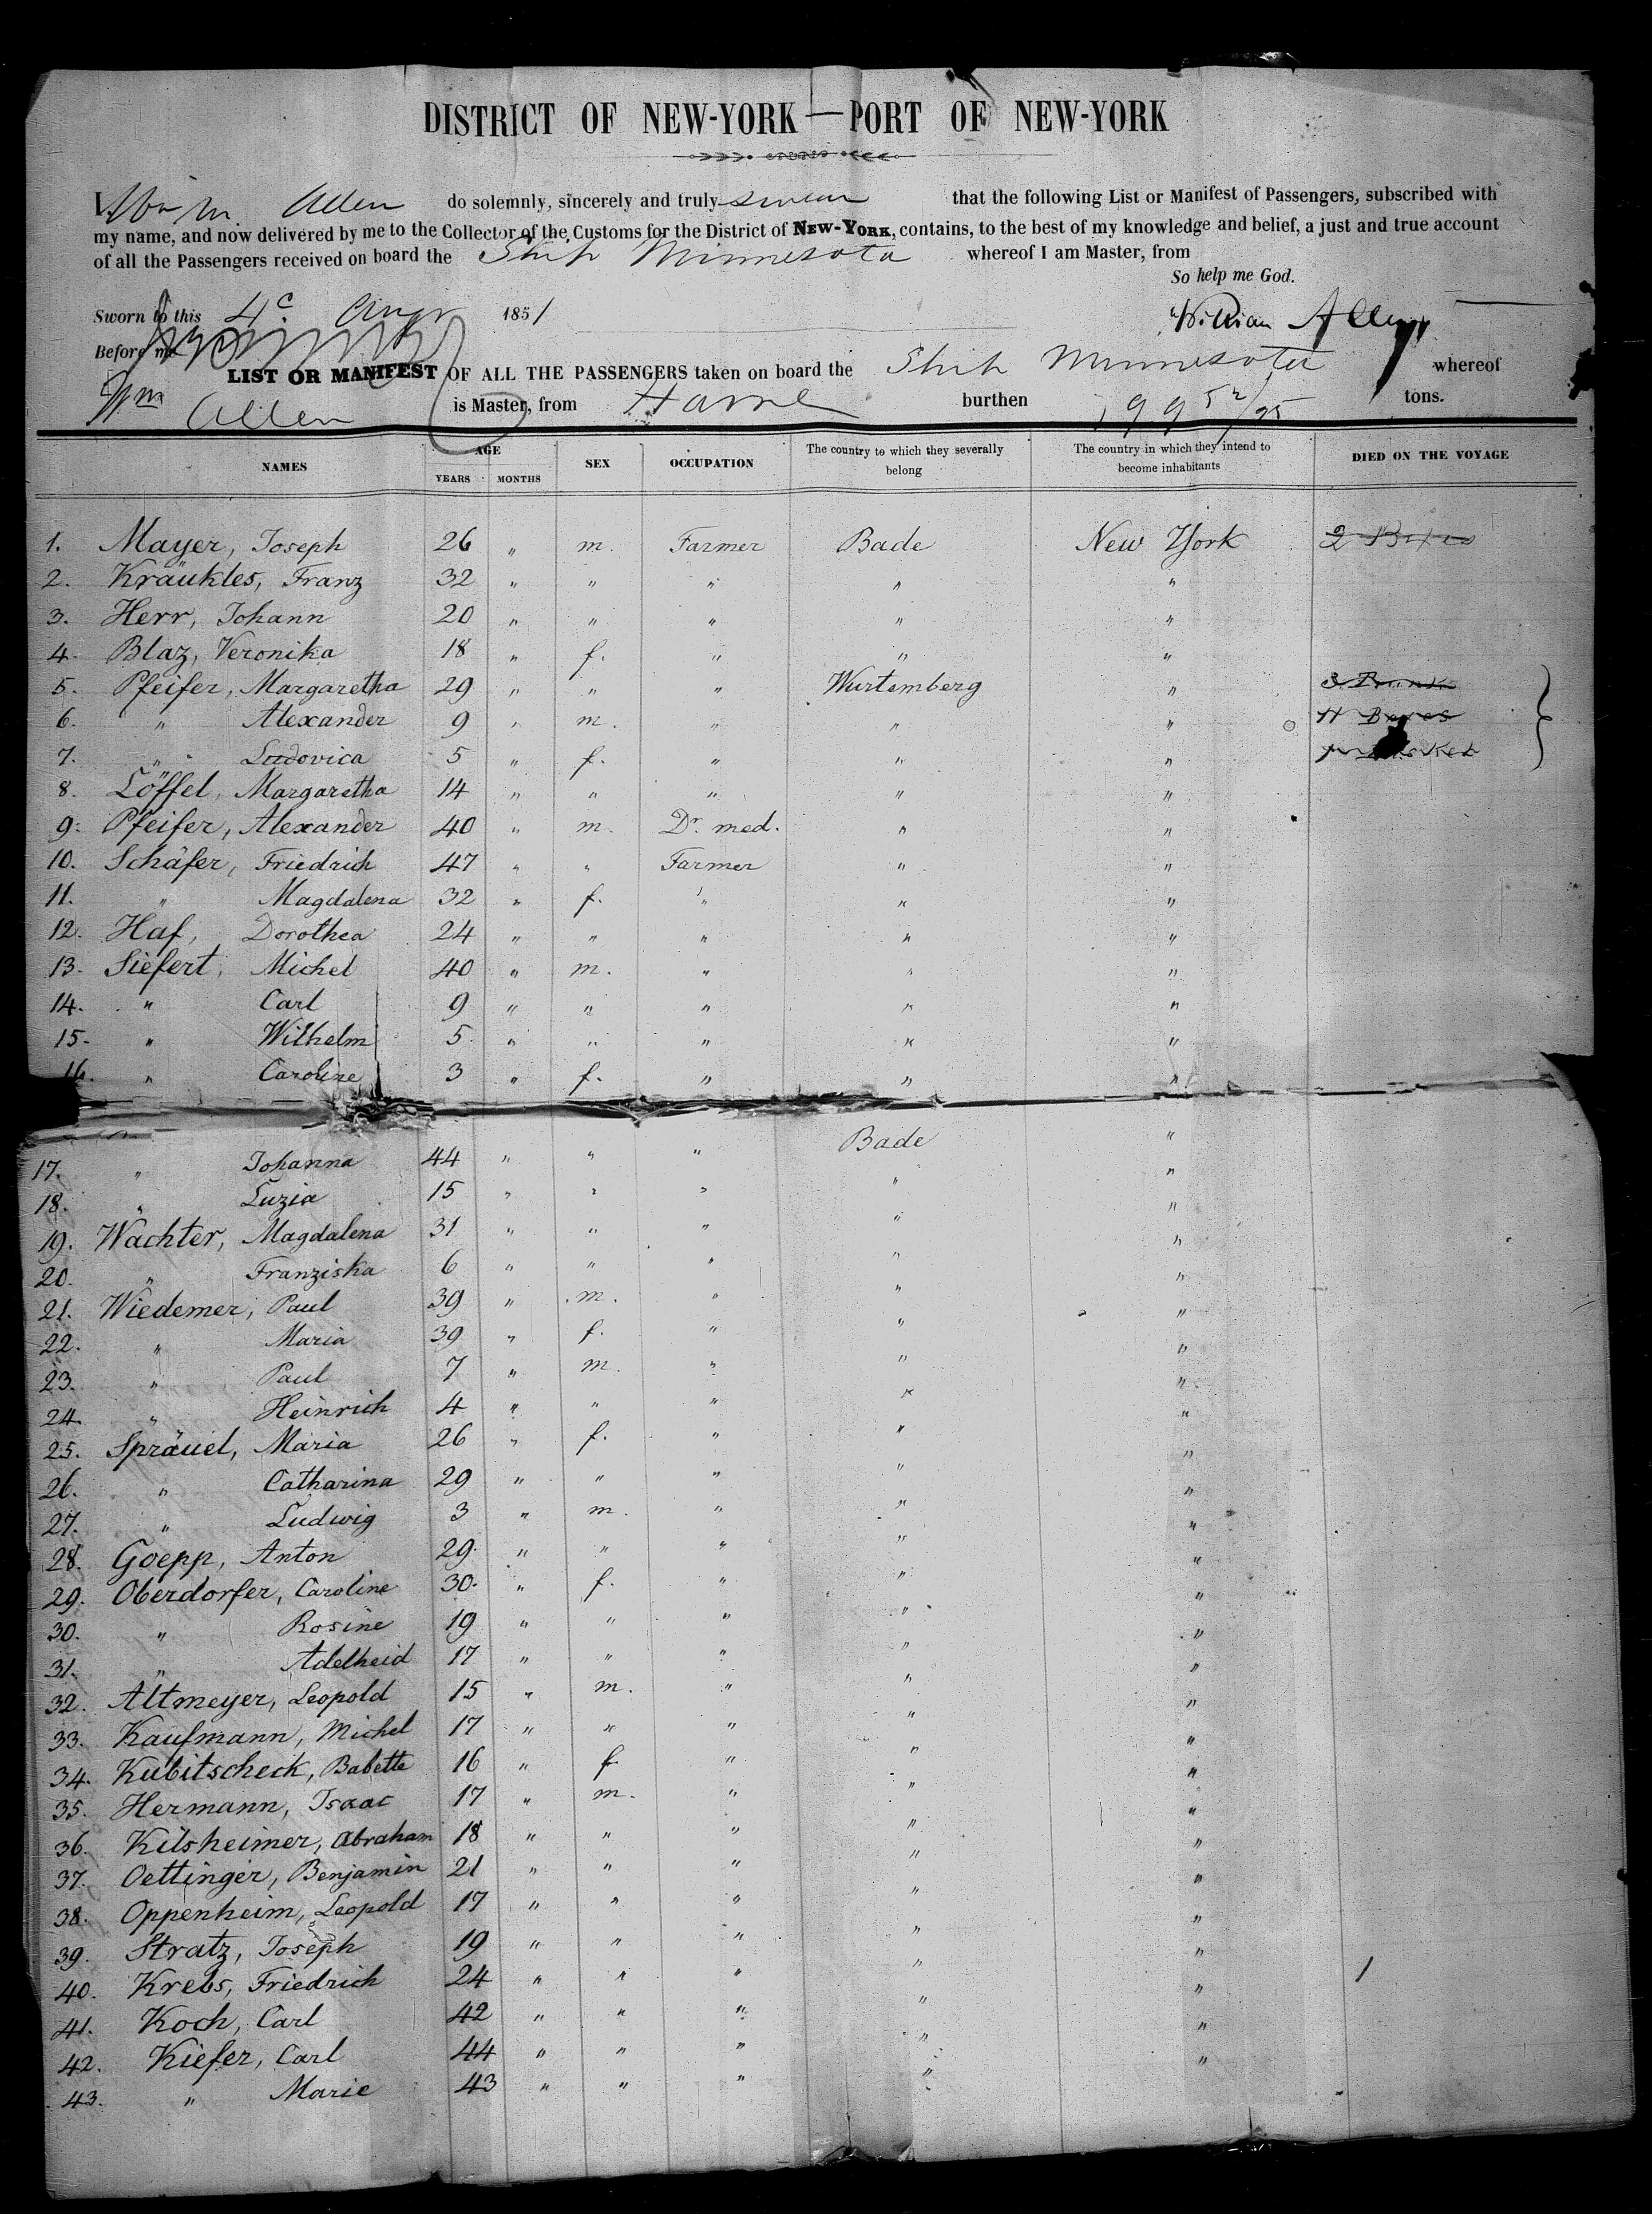 DISTRICT OF NEW-YORK — PORT OF NEW-YORK
I, Wm M. Allen do solemnly, sincerely and truly swear that the following List or Manifest of Passengers, subscribed with
my name, and now delivered by me to the Collector of the Customs for the District of NEW-YORK, contains, to the best of my knowledge and belief, a just and true account
of all the Passengers received on board the Ship Minnesota whereof I am Master, from
So help me God.
Sworn to this 4 Augt 1851 William Allen
Before me
LIST OR MANIFEST OF ALL THE PASSENGERS taken on board the Ship Minnesota whereof
Wm Allen is Master, from Havre burthen tons.
NAMES AGE YEARS MONTHS SEX OCCUPATION The country to which they severally belong The country in which they intend to become inhabitants DIED ON THE VOYAGE
1. Mayer, Joseph 26 " m. Farmer Bade New York 2 Boxes
2. Kräukles, Franz 32 " " " " "
3. Herr, Johann 20 " " " " "
4. Blaz, Veronika 18 " f. " " "
5. Pfeifer, Margaretha 29 " " " Wurtemberg "
6. " Alexander 9 " m. " " " 11 Boxes
7. " Ludovica 5 " f. " " "
8. Löffel, Margaretha 14 " " " " "
9. Pfeifer, Alexander 40 " m. Dr. med. " "
10. Schäfer, Friedrich 47 " " Farmer " "
11. " Magdalena 32 " f. " " "
12. Haf, Dorothea 24 " " " " "
13. Siefert, Michel 40 " m. " " "
14. " Carl 9 " " " " "
15. " Wilhelm 5 " " " " "
16. " Caroline 3 " f. " " "
17. " Johanna 44 " " " Bade "
18. " Luzia 15 " " " " "
19. Wachter, Magdalena 31 " " " " "
20. " Franziska 6 " " " " "
21. Wiedemer, Paul 39 " m. " " "
22. " Maria 39 " f. " " "
23. " Paul 7 " m. " " "
24. " Heinrich 4 " " " " "
25. Spräuel, Maria 26 " f. " " "
26. " Catharina 29 " " " " "
27. " Ludwig 3 " m. " " "
28. Goepp, Anton 29 " " " " "
29. Oberdorfer, Caroline 30 " f. " " "
30. " Rosine 19 " " " " "
31. " Adelheid 17 " " " " "
32. Altmeyer, Leopold 15 " m. " " "
33. Kaufmann, Michel 17 " " " " "
34. Kubitscheck, Babette 16 " f " " "
35. Hermann, Isaac 17 " m. " " "
36. Kilsheimer, Abraham 18 " " " " "
37. Oettinger, Benjamin 21 " " " " "
38. Oppenheim, Leopold 17 " " " " "
39. Stratz, Joseph 19 " " " " "
40. Krebs, Friedrich 24 " " " " " 1
41. Koch, Carl 42 " " " " "
42. Kiefer, Carl 44 " " " " "
43. " Marie 43 " " " "